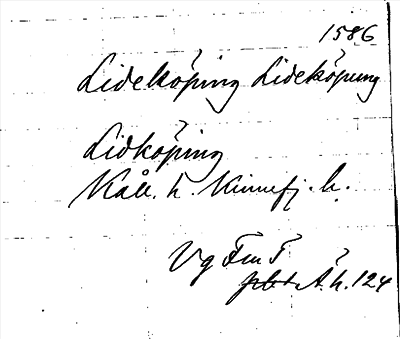 1586
Lideköping Lideköping
Lidköping
Kåll. h. Kinnefj. h.
Vg Fm T
Å. h. 124